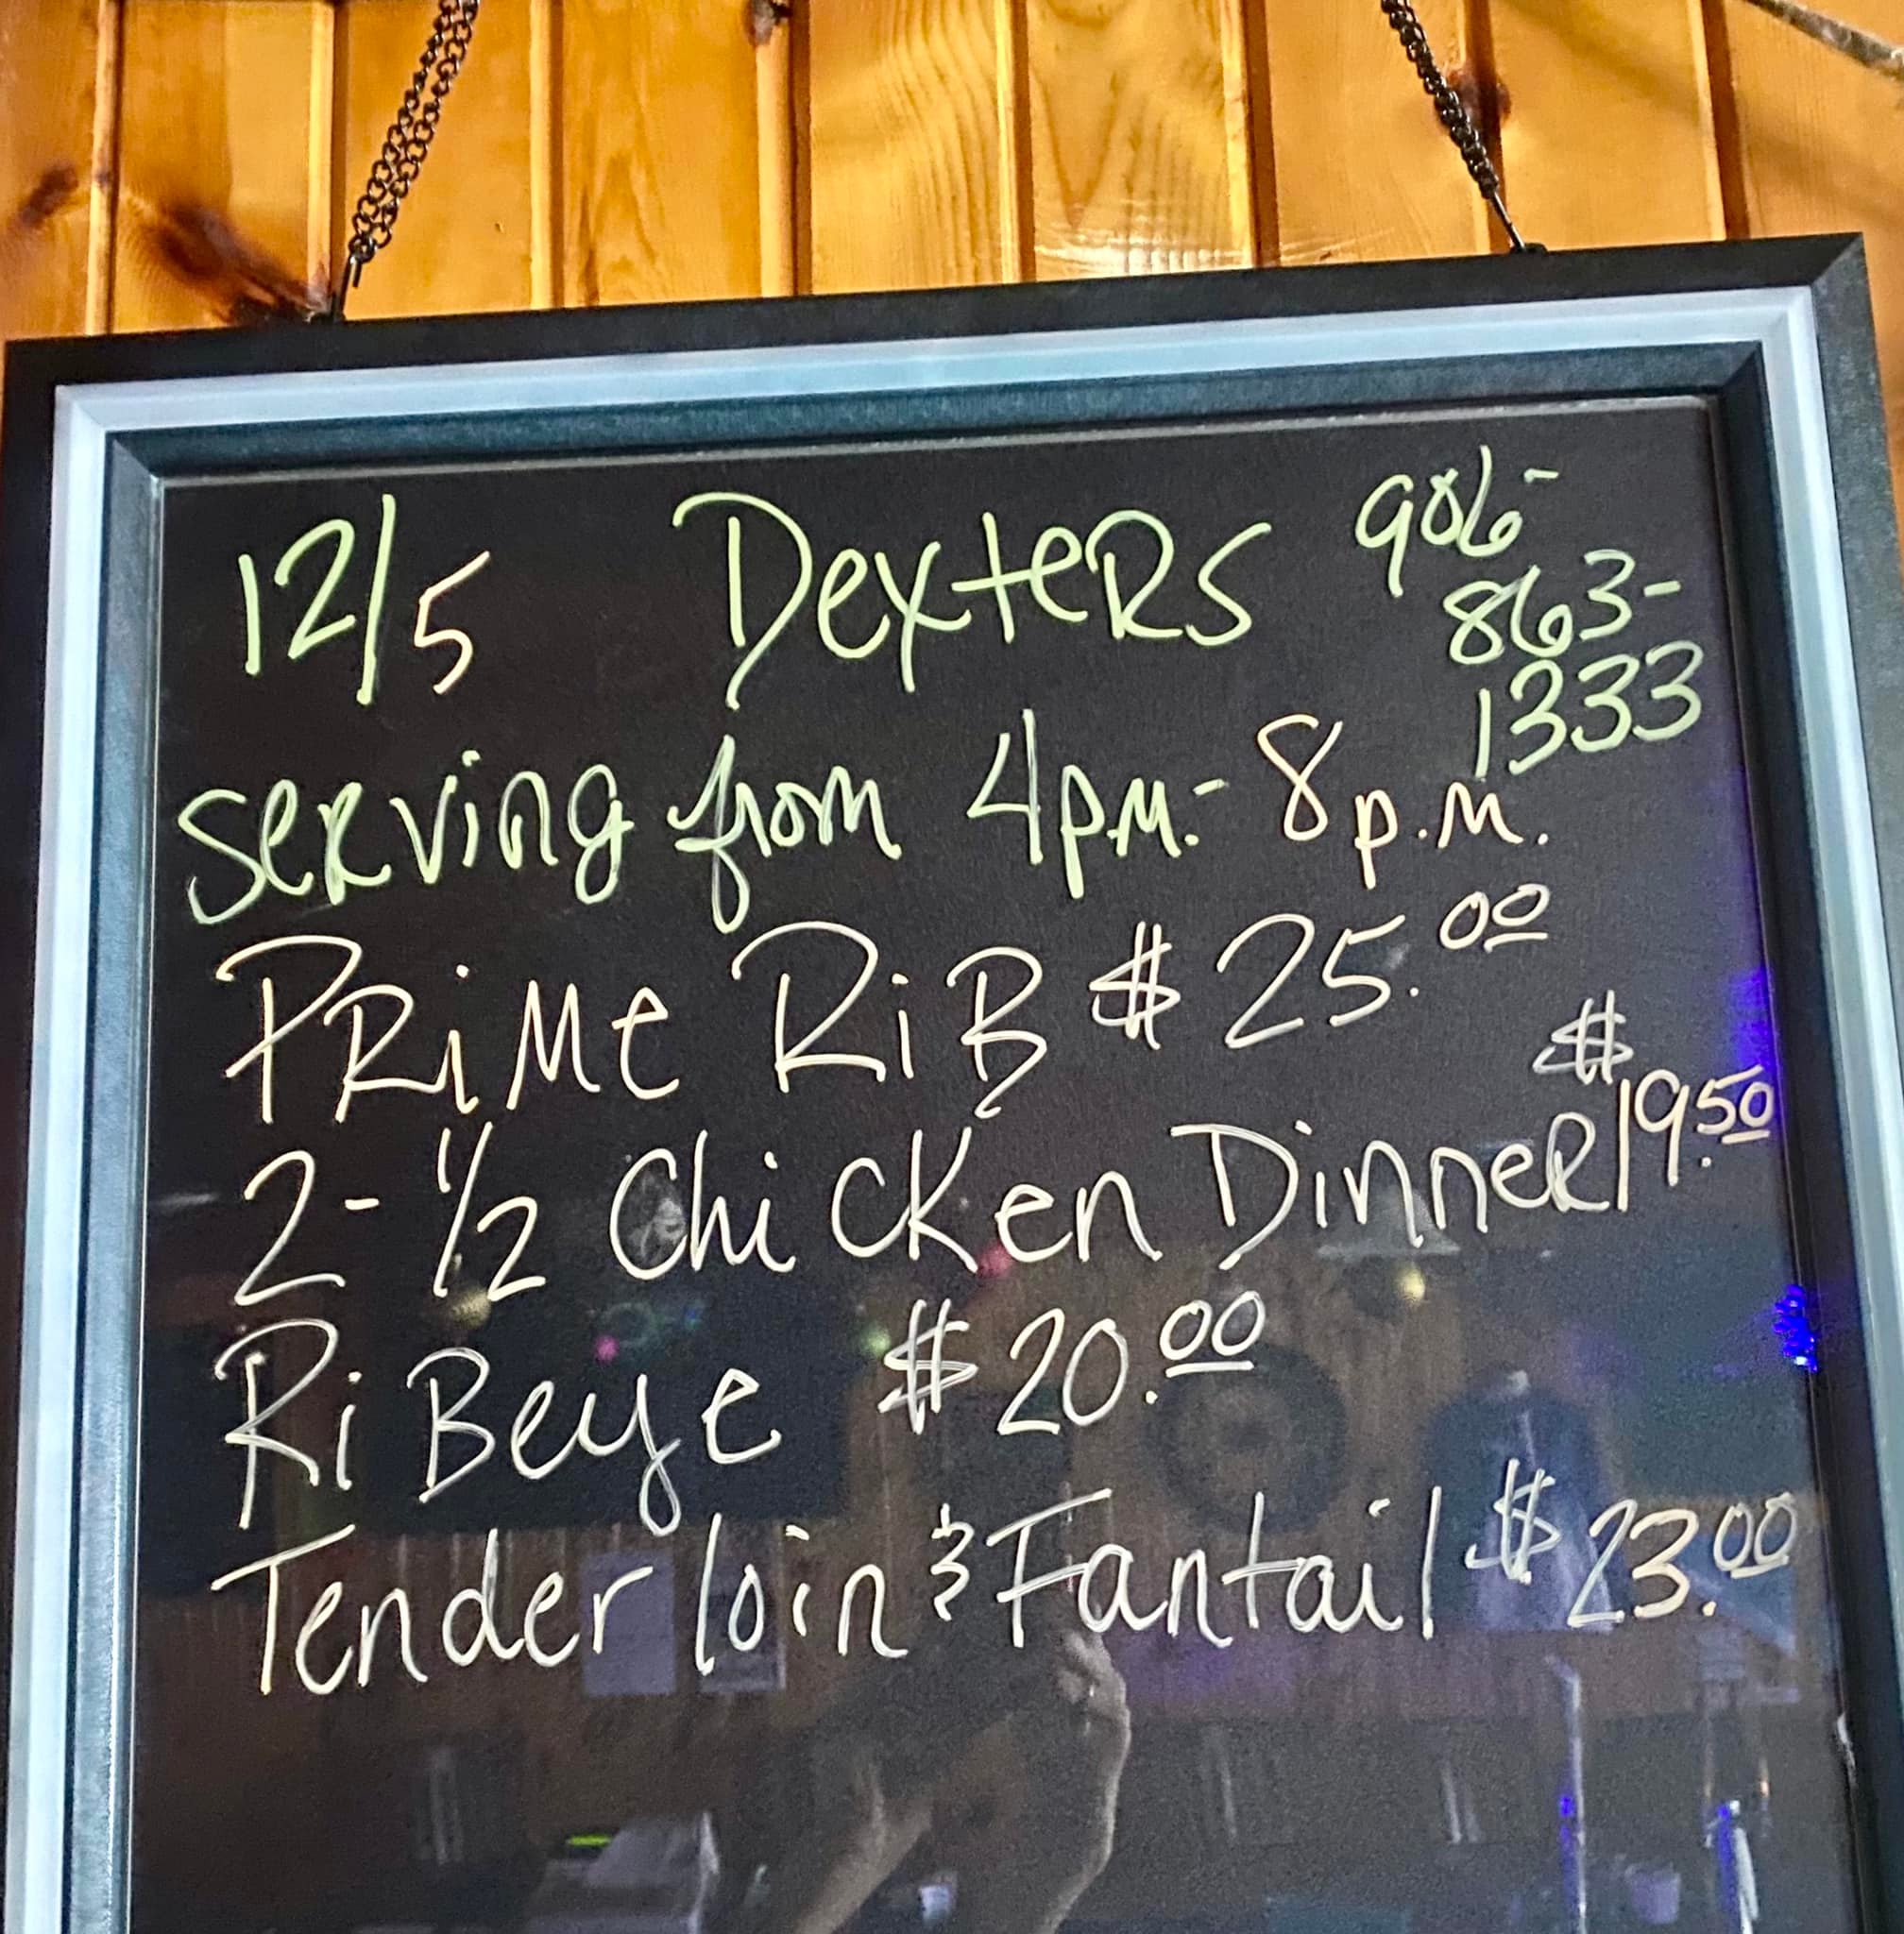 12/5 DexteRs 906-
863-
1333
seRving from 4pm.- 8p.m.
PRiMe RiB $25.00
2-1/2 ChiCKen DinneR $19.50
RiBeye $20.00
Tenderloin & Fantail $23.00